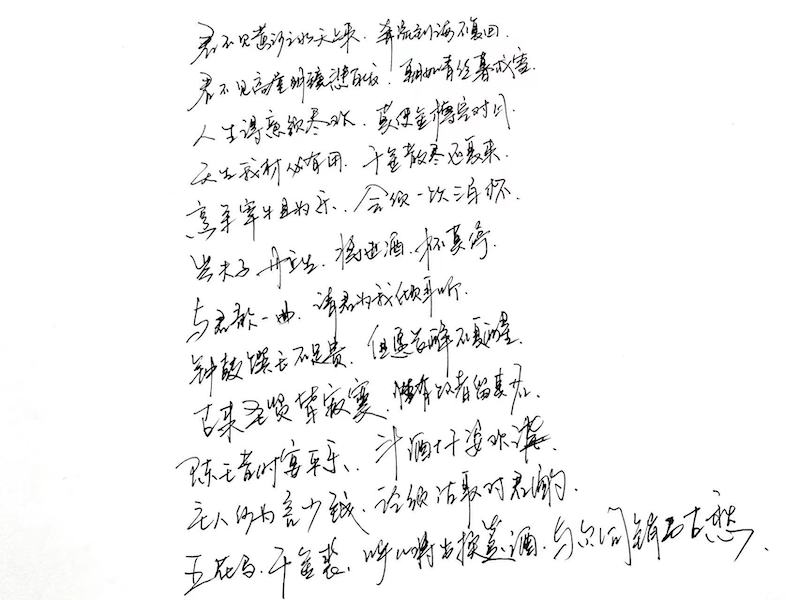 君不见黄河之水天上来，奔流到海不复回。
君不见高堂明镜悲白发，朝如青丝暮成雪。
人生得意须尽欢，莫使金樽空对月。
天生我材必有用，千金散尽还复来。
烹羊宰牛且为乐，会须一饮三百杯。
岑夫子，丹丘生，将进酒，杯莫停。
与君歌一曲，请君为我倾耳听。
钟鼓馔玉不足贵，但愿长醉不复醒。
古来圣贤皆寂寞，惟有饮者留其名。
陈王昔时宴平乐，斗酒十千恣欢谑。
主人何为言少钱，径须沽取对君酌。
五花马，千金裘，呼儿将出换美酒，与尔同销万古愁。